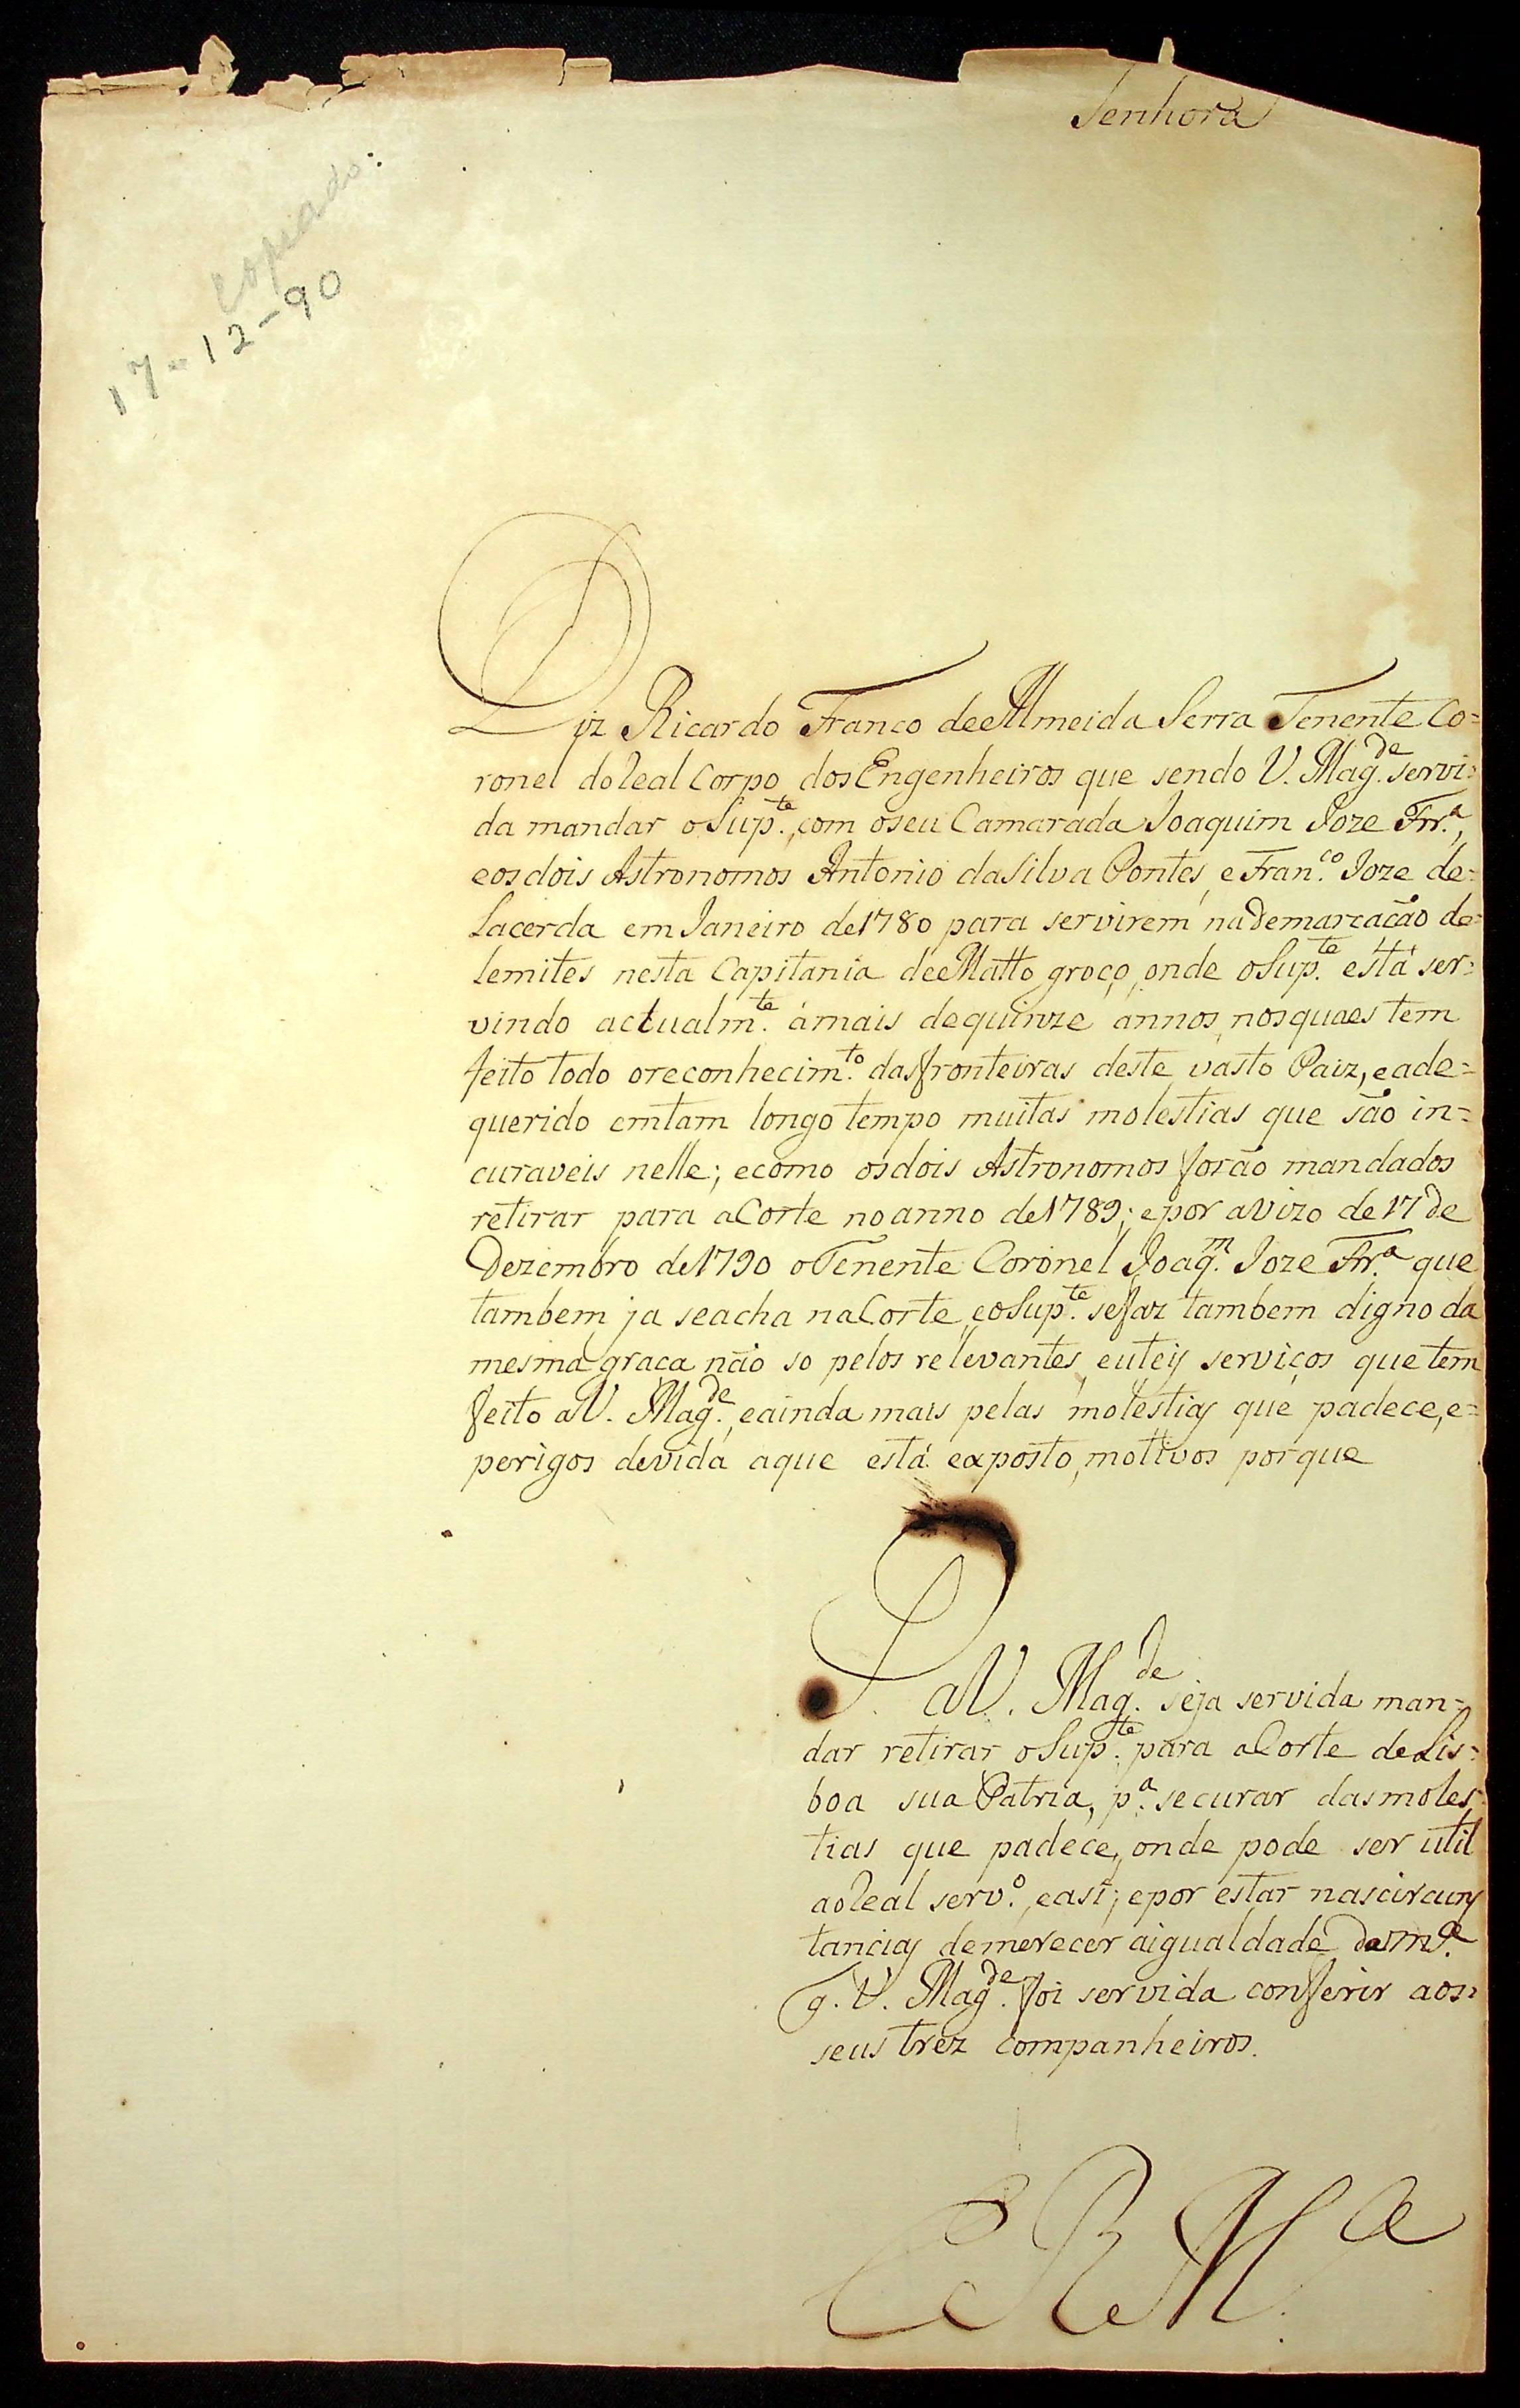 Senhora
copiado:
17-12-90
Diz Ricardo Franco de Almeida Serra Tenente Co=
ronel do Real Corpo dos Engenheiros que sendo V. Mag.de servi=
da mandar o Sup.te, com o seu Camarada Joaquim Joze Frr.a,
e os dois Astronomos Antonio da Silva Pontes, e Fran.co Joze de=
Lacerda em Janeiro de 1780 para servirem na Demarcação de=
lemites nesta Capitania de Matto groço, onde o Sup.te está ser=
vindo actualm.te á mais de quinze annos, nos quaes tem
feito todo o reconhecim.to das fronteiras deste vasto Paiz, e ade=
querido em tam longo tempo muitas molestias que são in=
curaveis nelle; e como os dois Astronomos forão mandados
retirar para a Corte no anno de 1789; e por avizo de 17 de
Dezembro de 1790 o Tenente Coronel Joaq.m Joze Fr.a que
tambem ja se acha na Corte, e o Sup.te se faz tambem digno da
mesma graca não so pelos relevantes, e uteis serviços que tem
feito a V. Mag.de, e ainda mais pelas molestias que padece, e=
perigos de vida a que está exposto, motivos por que
P. a V. Mag.de seja servida man=
dar retirar o Sup.te para a Corte de Lis=
boa sua Patria, p.a se curar das moles=
tias que padece, onde pode ser util
ao Real serv.o, e a si; e por estar nas circuns
tancias de merecer a igualdade da m.e
q. V. Mag.de foi servida conferir aos=
seus trez companheiros.
E R M.e